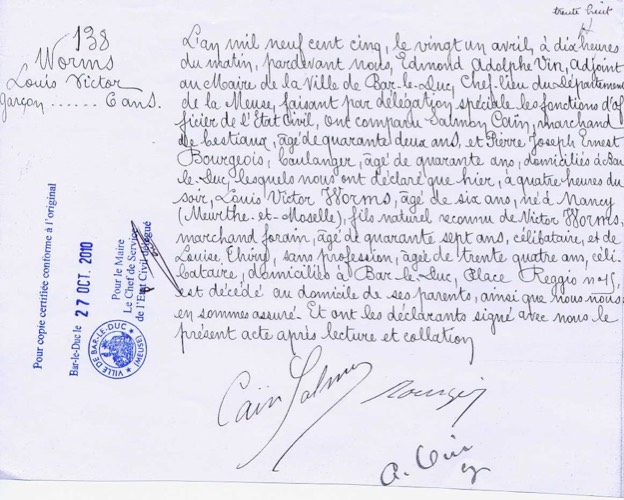 trente huit
138
Worms
Louis Victor
garçon ...... 6 ans.
L'an mil neuf cent cinq, le vingt un avril, à dix heures
du matin, pardevant nous, Edmond Adolphe Vin, adjoint
au Maire de la Ville de Bar-le-Duc, Chef-lieu du Département
de la Meuse, faisant par délégation spéciale les fonctions d'of
ficier de l'Etat Civil, ont comparu Salmon Caïn, marchand
de bestiaux, âgé de quarante deux ans, et Pierre Joseph Ernest
Bourgeois, boulanger, âgé de quarante ans, domiciliés à Bar
le-Duc, lesquels nous ont déclaré que hier, à quatre heures du
soir, Louis Victor Worms, âgé de six ans, né à Nancy
(Meurthe-et-Moselle), fils naturel reconnu de Victor Worms,
marchand forain, âgé de quarante sept ans, célibataire, et de
Louise, sans profession, âgée de trente quatre ans, céli-
bataire, domiciliés à Bar-le-Duc, Place Reggio n° 15,
est décédé au domicile de ses parents, ainsi que nous nous
en sommes assuré. Et ont les déclarants signé avec nous le
présent acte après lecture et collation
Caïn Salmon
Pour copie certifiée conforme à l'original
Bar-le-Duc le 27 OCT. 2010
Pour le Maire
Le Chef de Service
de l'Etat Civil délégué
VILLE DE BAR-LE-DUC (MEUSE)